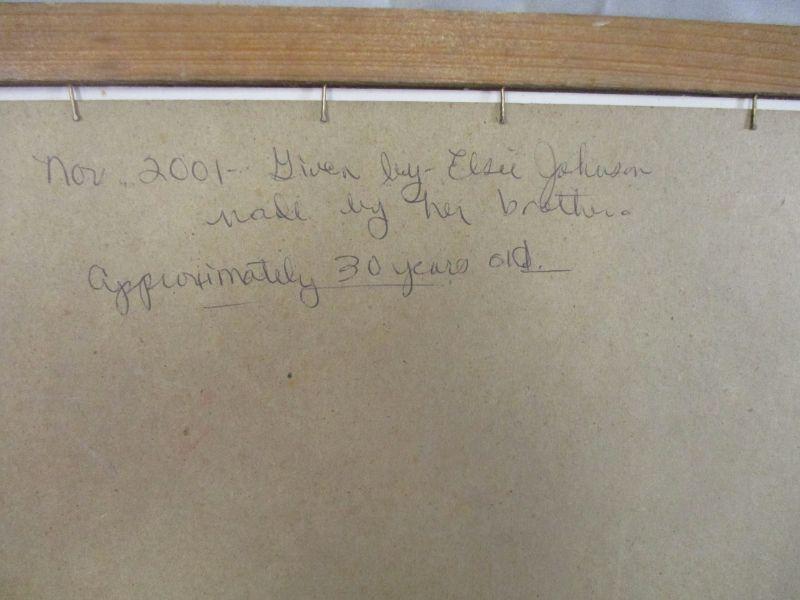 Nov. 2001- Given by- Elsie Johnson
made by her brother.
Approximately 30 years old.